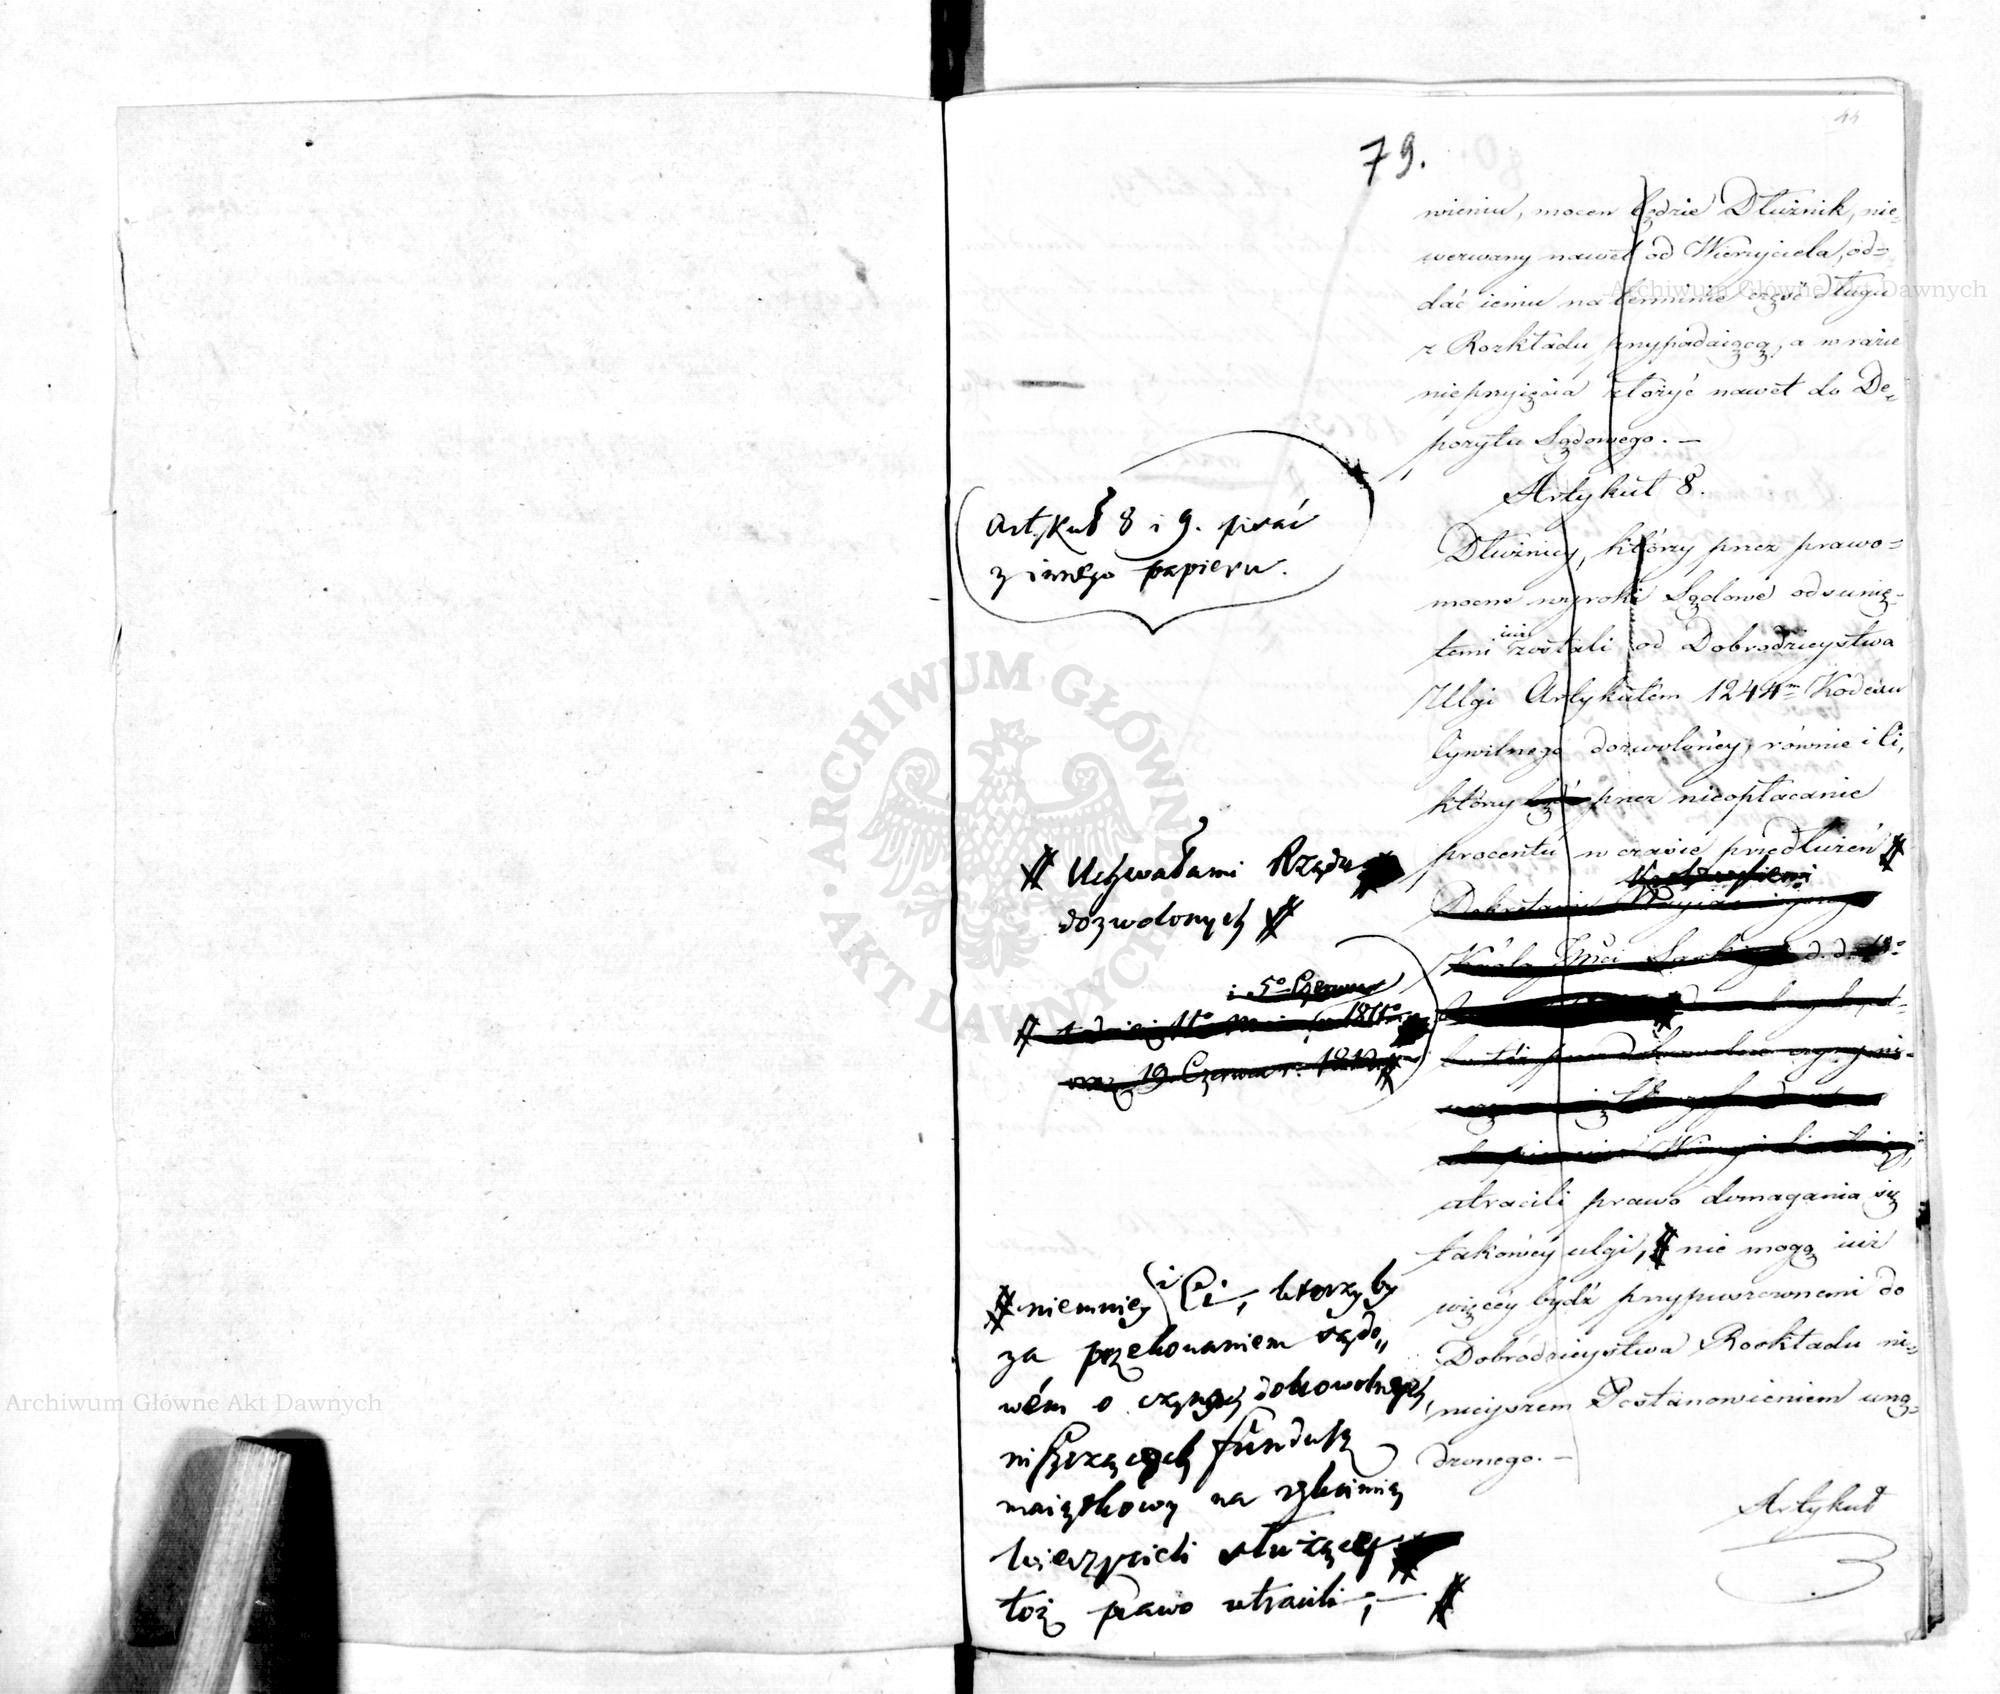 44
79.
wieniu, mocen będzie Dłużnik, nie-
wezwany nawet od Wierzyciela, od=
dać iemu na terminie część długu
z Rozkładu przypadaiącą, a w razie
nieprzyięcia złożyć nawet do De-
pozytu Sądowego. —
Artykuł 8.
Dłużnicy, którzy przez prawo=
mocne wyroki Sądowe odsunię-
temi iuż zostali od Dobrodzieystwa
Ulgi Artykułem 1244m Kodexu
Cywilnego dozwolóney, równie i Ci,
którzy przez nieopłacanie
procentu w czasie przedłużeń #
Dekretami
Króla Jmci Saskiego d. d.
utracili prawo domagania się
takowey ulgi, # nie mogą iuż
więcey bydź przypuszczonemi do
Dobrodzieystwa Rozkładu ni=
nieyszem Postanowieniem urzą=
dzonego. —
Artykuł
Artykuł 8 i 9. pisać
z innego papieru.
# Uchwałami Rządu
dozwolonych #
i 5o Czerwca
1811o
19. Czerwca r.
# niemniey i Ci, ktorzyby
za przekonaniem sądo„
wém o czyny dobrowolnych,
niszczących fundusz
maiątkowy na
wierzycieli służący
toż prawo utracili; — #
ARCHIWUM GŁÓWNE AKT DAWNYCH
Archiwum Główne Akt Dawnych
Archiwum Główne Akt Dawnych